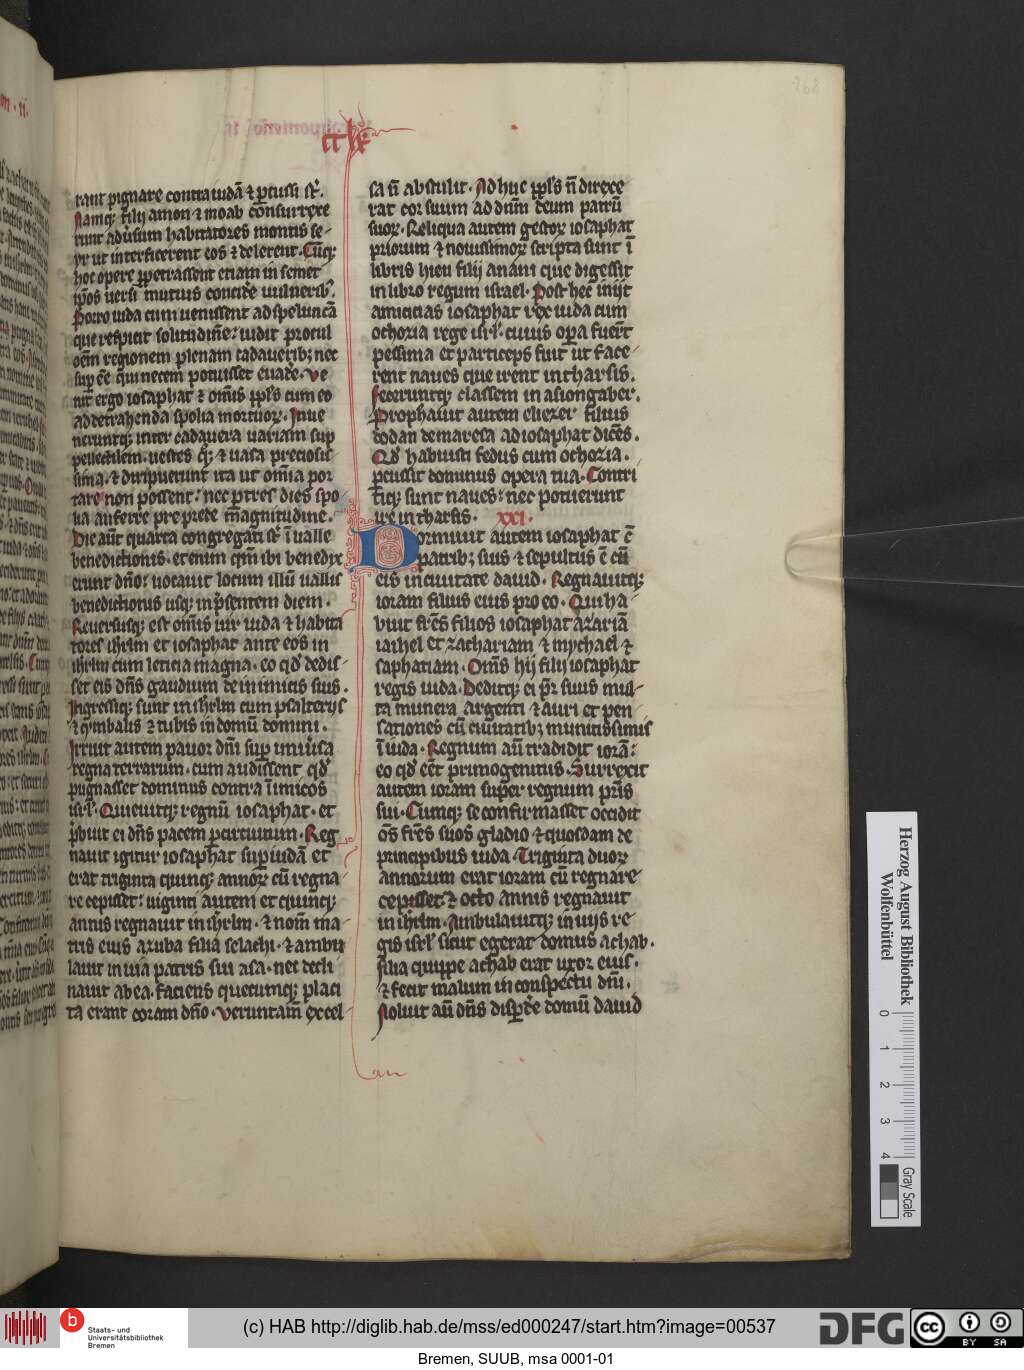 rant pignare contra iudā ⁊ ꝑcussi sꝉ.
Namqꝫ filij amon ⁊ moab consurrexe
runt aduersum habitatores montis se-
yr ut interficerent eos ⁊ delerent. Cūqꝫ
hoc opere ꝑpetrassent etiam in semet
ip̄os uersi mutuis concidē uulneribꝫ.
Porro iuda cum uenissent ad speluncā
que respicit solitudinē: uidit procul
oēm regionem plenam cadaueribꝫ nec
suꝑ ēe qui necem potuisset euadē. Ve
nit ergo iosaphat ⁊ om̄is ppl̄s cum eo
ad detrahenda spolia mortuoꝝ. Inue
neruntqꝫ inter cadauera uariam sup
pellectilem. uestes qꝫ ⁊ uasa preciosis-
sima. ⁊ diripuerunt ita ut om̄ia por
tare non possent: nec ꝑ tres dies spo
lia auferre pre prede magnitudine.
Die aūt quarta congregati sꝉ ī ualle
benedictionis. etenim qm̄ ibi benedix
erunt dn̄o: uocauit locum illū uallis
benedictionis usqꝫ in p̄sentem diem.
Reuersusqꝫ est om̄is uir iuda ⁊ habita
tores ihrlm et iosaphat ante eos in
ihrlm cum leticia magna. eo qd̄ dedis-
set eis dn̄s gaudium de inimicis suis.
Ingressiqꝫ sunt in ihrlm cum psalterijs
⁊ cymbalis ⁊ tubis in domū domini.
Irruit autem pauor dn̄i suꝑ uniūsa
regna terrarum. cum audissent qd̄
pugnasset dominus contra īimicos
isrl̄. Quieuitqꝫ regnū iosaphat. et
p̄buit ei dn̄s pacem ꝑ circuitum. Reg
nauit igitur iosaphat suꝑ iudām et
erat triginta quinqꝫ annoꝝ cū regna-
re cepisset: uiginti autem et quinqꝫ
annis regnauit in ihrlm. ⁊ nom̄ ma-
tris eius azuba filia selachi. ⁊ ambu
lauit in uia patris sui asa. nec decli
nauit ab ea. faciens quecumqꝫ placi
ta erant coram dn̄o. Veruntam̄ excel
sa n̄ abstulit. Adhuc ppl̄s n̄ direxe
rat cor suum ad dn̄m deum patrū
suoꝝ. Reliqua autem gestoꝝ iosaphat
priorum ⁊ nouissimoꝝ scripta sunt ī
libris hieu filij anani que digessit
in libro regum israel. Post hec inijt
amicicias iosaphat rex iuda cum
ochozia rege isrl̄. cuius oꝑa fuerūt
pessima et particeps fuit ut face-
rent naues que irent in tharsis.
feceruntqꝫ classem in asiongaber.
Prophauit autem eliezer filius
dodan de maresa ad iosaphat dicēs.
Qd̄ habuisti fedus cum ochozia.
ꝑcussit dominus opera tua. Contri
teqꝫ sunt naues: nec potuerunt
ire in tharsis. XXI.
Dormiuit autem iosaphat c̄
patribꝫ suis ⁊ sepultus ē cū
eis in ciuitate dauid. Regnauitqꝫ
ioram filius eius pro eo. Qui ha-
buit fr̄es filios iosaphat azariā
iaihel et zachariam ⁊ mychael ⁊
saphatiam. Om̄s hij filij iosaphat
regis iuda. Deditqꝫ ei pr̄ suus mul-
ta munera argenti ⁊ auri et pen-
sationes cū ciuitatibꝫ munitissimis
ī iuda. Regnum aū tradidit iorā:
eo qd̄ eēt primogenitus. Surrexit
autem ioram super regnum pr̄is
sui. Cumqꝫ se confirmasset occidit
om̄s fr̄es suos gladio ⁊ quosdam de
principibus iuda. Triginta duoꝝ
annorum erat ioram cū regnare
cepisset. ⁊ octo annis regnauit
in ihrlm. Ambulauitqꝫ in uijs re-
gis isrl̄ sicut egerat domus achab.
filia quippe achab erat uxor eius.
⁊ fecit malum in conspectu dn̄i.
Noluit aū dn̄s disꝑdē domū dauid
268
Herzog August Bibliothek
Wolfenbüttel
0 1 2 3 4
Gray Scale
b Staats- und
Universitätsbibliothek
Bremen
(c) HAB http://diglib.hab.de/mss/ed000247/start.htm?image=00537
DFG
cc BY SA
Bremen, SUUB, msa 0001-01